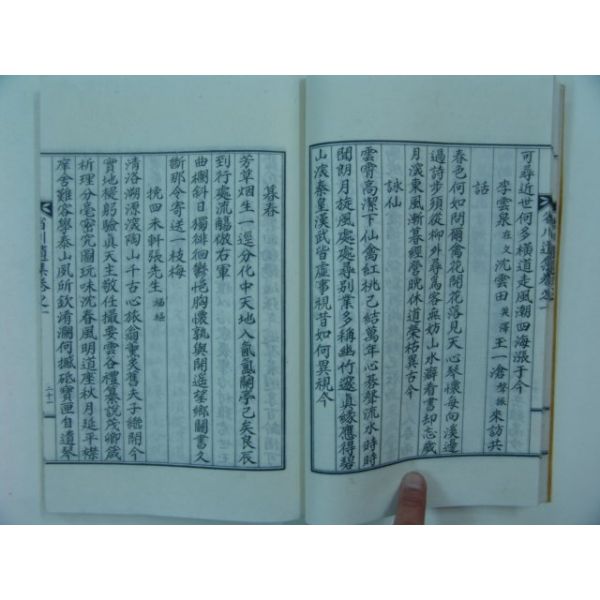 可尋近世何多橫道走風潮四海漲于今
李雲泉在文沈雲田英澤王一滄聲振來訪共
話
春色何如問爾禽花開花落見天心琴懷每向溪邊
過詩步頻從柳外尋爲客無妨山水癖看書却忘歲
月深東風漸暮經營晩休道榮枯異古今
詠仙
雲霄高潔下仙禽紅桃已結萬年心碁聲流水時時
聞朗月旋風處處尋別業多稱幽竹邃眞緣應得碧
山深秦皇漢武皆虛事視昔如何異視今
暮春
芳草烟生一逕分化中天地入氤氳蘭亭已矣良辰
到行處流觴倣右軍
曲欄斜日獨徘徊鬱悒胸懷孰與開遥望鄉關書久
斷那令寄送一枝梅
挽四未軒張先生福樞
淸洛溯源深陶山千古心旅翁薰炙舊夫子繼開今
實地慥躬驗眞天主敬任撮要雲谷禮纂說茂卿箴
析理分毫密究圖玩味沈春風明道座秋月延平襟
摩舍難容學泰山夙所欽淆瀾何撼砥寶匣自遺琴
省川遺集卷之一
二十一